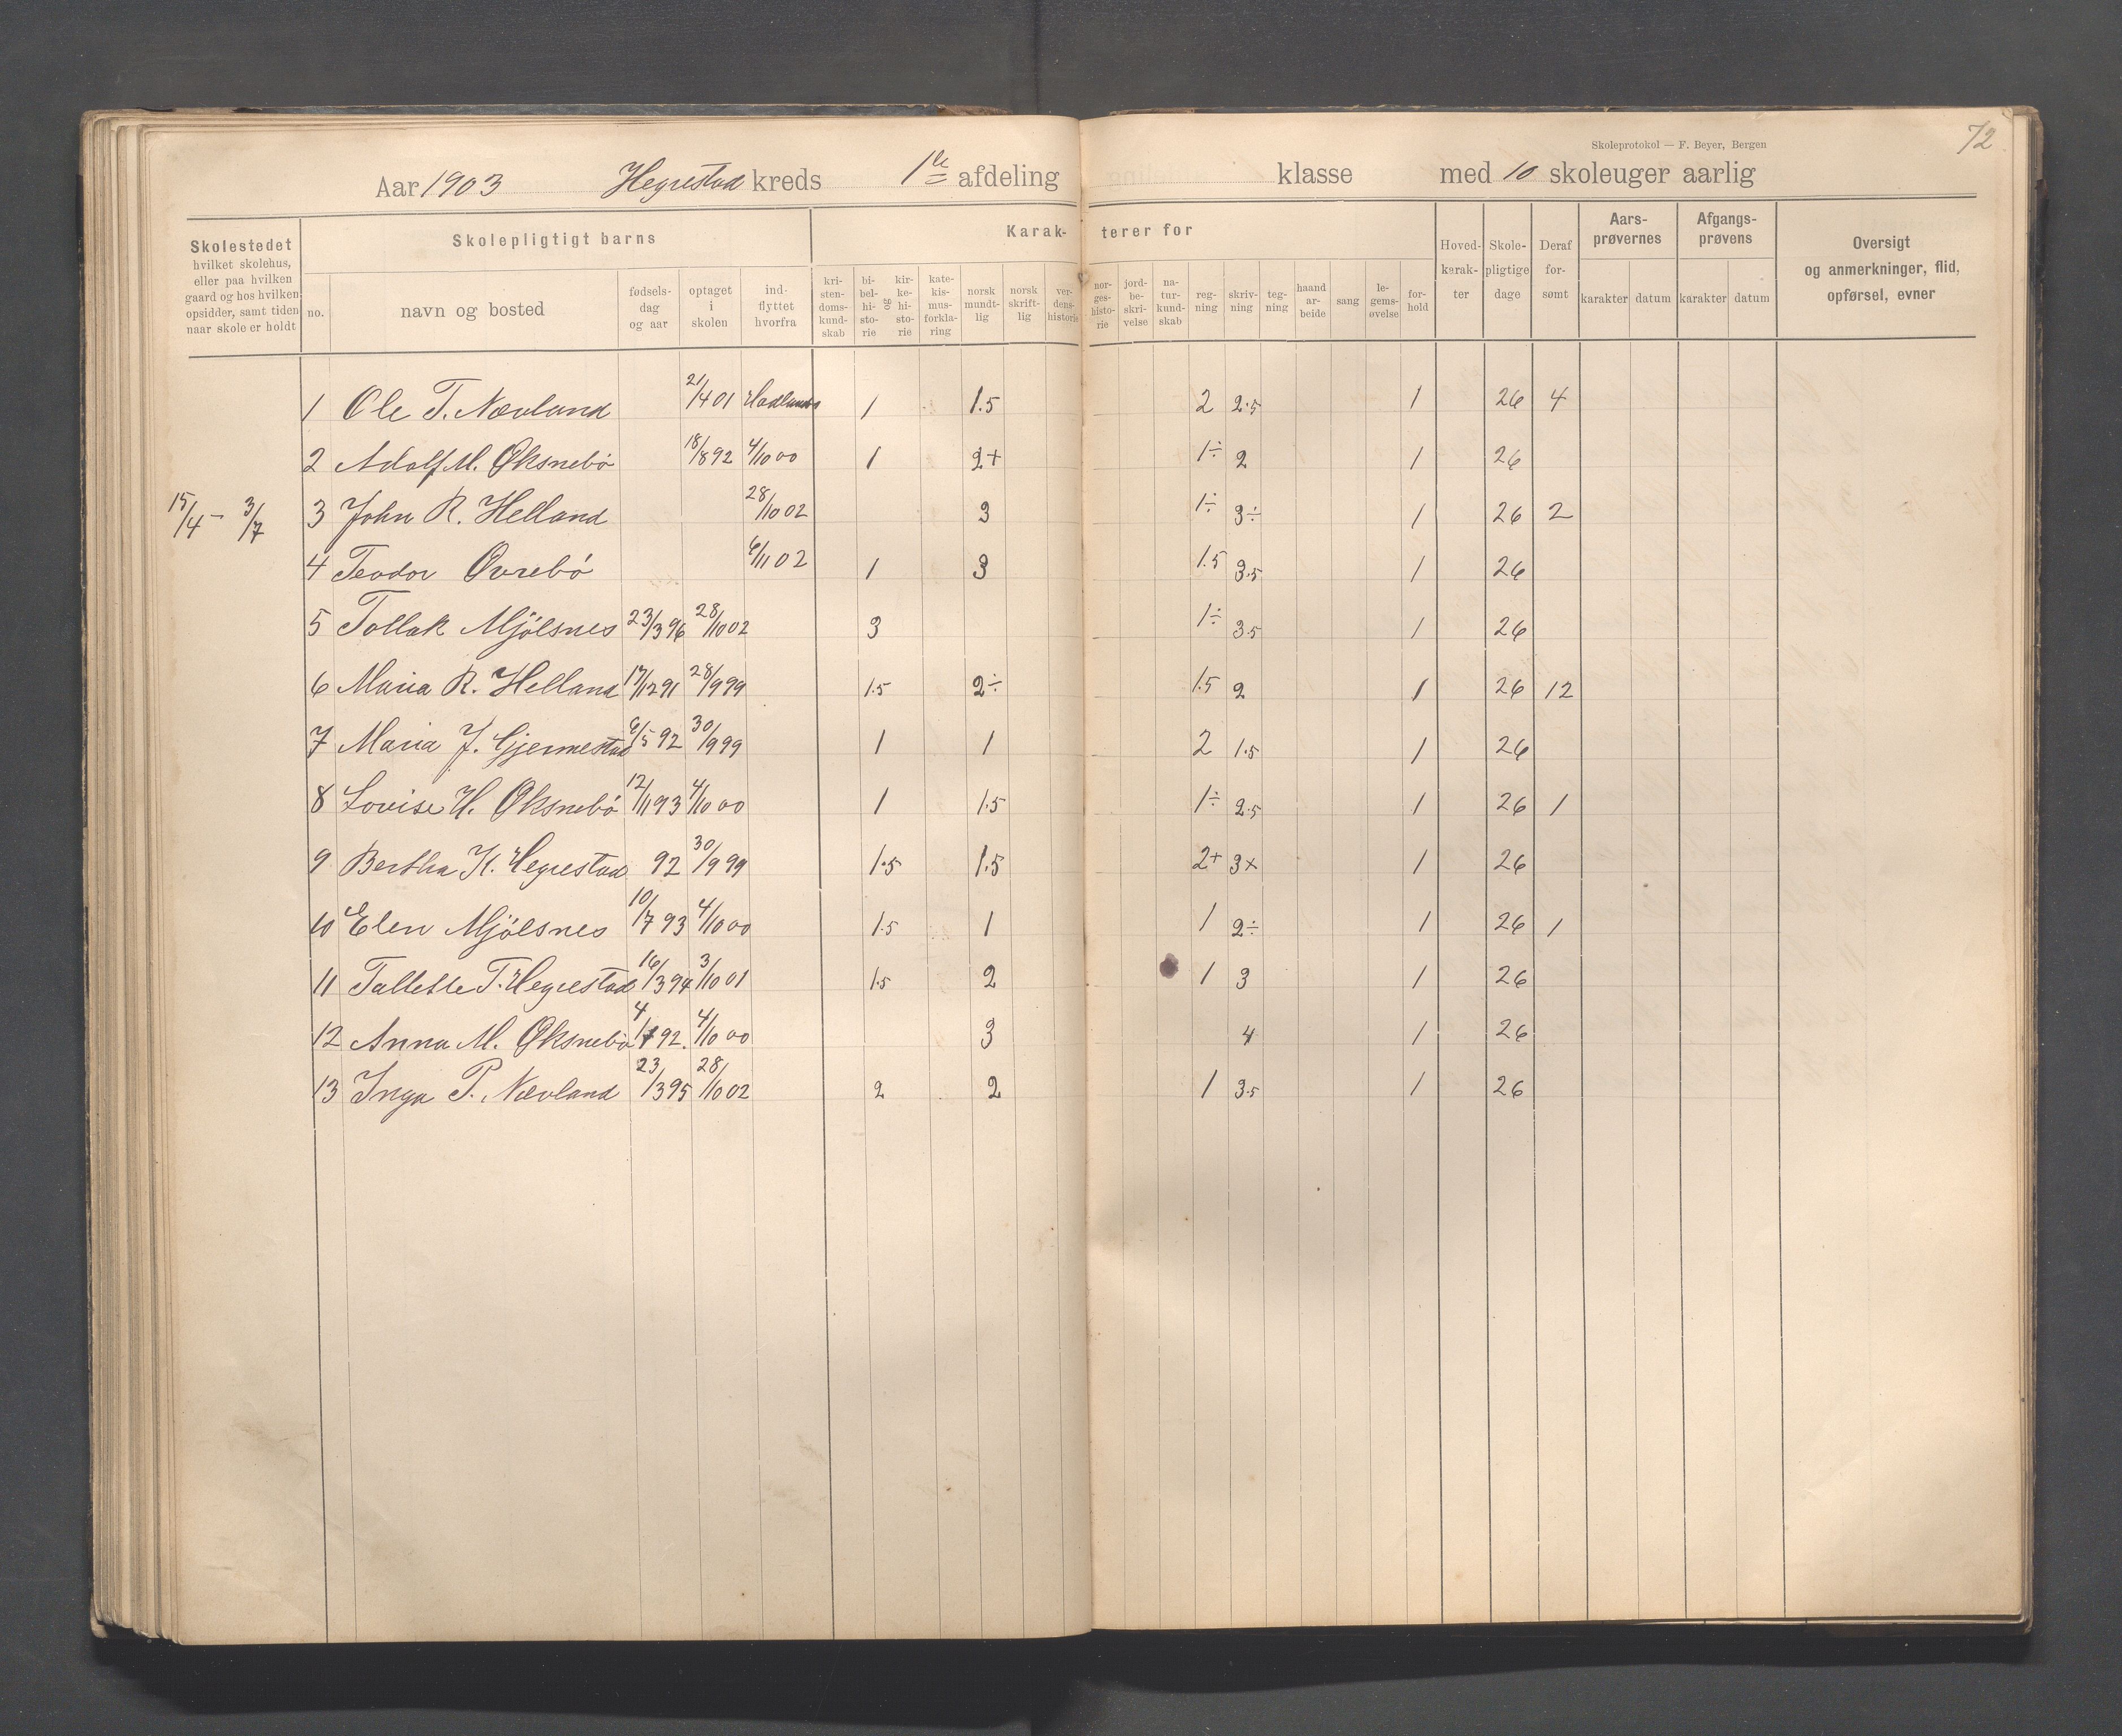 72
Skoleprotokol — F. Beyer, Bergen
Aar 1903 Hegrestad kreds 1ste afdeling klasse med 10 skoleuger aarlig
Skolestedet hvilket skolehus, eller paa hvilken gaard og hos hvilken opsidder, samt tiden naar skole er holdt
Skolepligtigt barns
no. navn og bosted fødsels-dag og aar optaget i skolen ind-flyttet hvorfra
Karak- terer for
kri-sten-doms-kund-skab bi-bel-hi-sto-rie og kir-ke-hi-sto-rie kate-kis-mus-forkla-ring norsk mundt-lig norsk skrift-lig ver-dens-historie nor-ges-histo-rie jord-be-skri-velse na-tur-kund-skab reg-ning skriv-ning teg-ning haand ar-beide sang le-gems-øvelse for-hold
Hoved-karak-ter Skole-pligtige dage Deraf for-sømt
Aars-prøvernes karakter datum
Afgangs-prøvens karakter datum
Oversigt og anmerkninger, flid, opførsel, evner
1 Ole T. Nævland 21/4 01 1 1.5 2 2.5 1 26 4
2 Adolf M. Øksnebö 18/8 92 4/10 00 1 2+ 1÷ 2 1 26
15/4 – 3/7 3 John R. Helland 28/10 02 3 1÷ 3÷ 1 26 2
4 Teodor Øvrebö 6/11 02 1 3 1.5 3.5 1 26
5 Tollak Mjölsnes 23/3 96 28/10 02 3 1÷ 3.5 1 26
6 Maria R. Helland 17/12 91 28/9 99 1.5 2÷ 1.5 2 1 26 12
7 Maria J. Gjermestad 6/5 92 30/9 99 1 1 2 1.5 1 26
8 Lovise H. Øksnebö 12/11 93 4/10 00 1 1.5 1÷ 2.5 1 26 1
9 Bertha K. Hegrestad 92 30/9 99 1.5 1.5 2+ 3+ 1 26
10 Elen Mjölsnes 10/7 93 4/10 00 1.5 1 1 2÷ 1 26 1
11 Tallette T. Hegrestad 16/3 94 3/10 01 1.5 2 1 3 1 26
12 Anna M. Øksnebö 92. 4/10 00 3 4 1 26
13 Inga P. Nævland 23/3 95 28/10 02 2 2 1 3.5 1 26